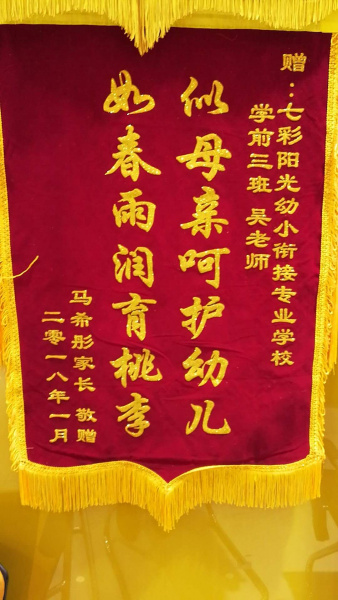 赠：七彩阳光幼小衔接专业学校
学前三班 吴老师
似母亲呵护幼儿
如春雨润育桃李
马希彤家长 敬赠
二零一八年一月